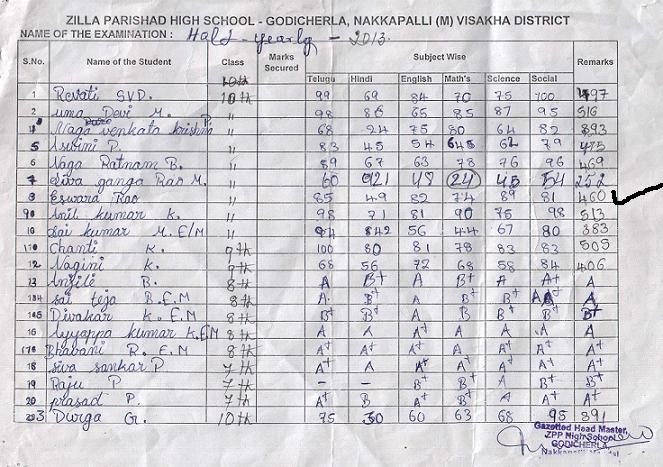 ZILLA PARISHAD HIGH SCHOOL - GODICHERLA, NAKKAPALLI (M) VISAKHA DISTRICT
NAME OF THE EXAMINATION : Half - yearly - 2013.
S.No. Name of the Student Class Marks Secured Subject Wise Remarks
Telugu Hindi English Math's Science Social
10th
1 Revati S.V.D. 10th 99 69 84 70 75 100 497
2 uma Devi M. " 98 86 65 85 87 95 516
Naga venkata krishna P. " 68 24 75 80 64 82 393
5 Asvini P. " 83 45 54 62 79
6 Naga Ratnam B. " 89 67 63 78 76 96 469
7 Siva ganga Rao M. " 60 48 24 45 54 252
Eswara Rao " 85 49 82 74 89 81 460
Anil kumar K. " 98 71 81 90 75 98 513
10 Sai kumar M. E/M " 94 56 44 67 80 383
Chanti K. 9th 100 80 81 78 83 83 505
12 Nagini K. 9th 68 56 72 68 58 84 406
13 B. 8th A B+ A A A+ A
sai teja B.E.M 8th A B+ A B+ B+ A
Divakar K. E.M 8th B+ B+ A B+ B+ B+ B+
Ayyappa kumar K.E.M 8th A A A+ A A A A
Bhavani R. E.M 8th A+ A+ A A+ A+ A+ A+
18 Siva sankar P 7th A+ A A+ A+ A A+ A+
19 Raju P 7th - - B+ B+ A B+ B+
20 prasad P. 7th A A A A+ A A+ A+
Durga G. 10th 75 30 60 63 68 95 391
Gazetted Head Master,
ZPP High School
GODICHERLA,